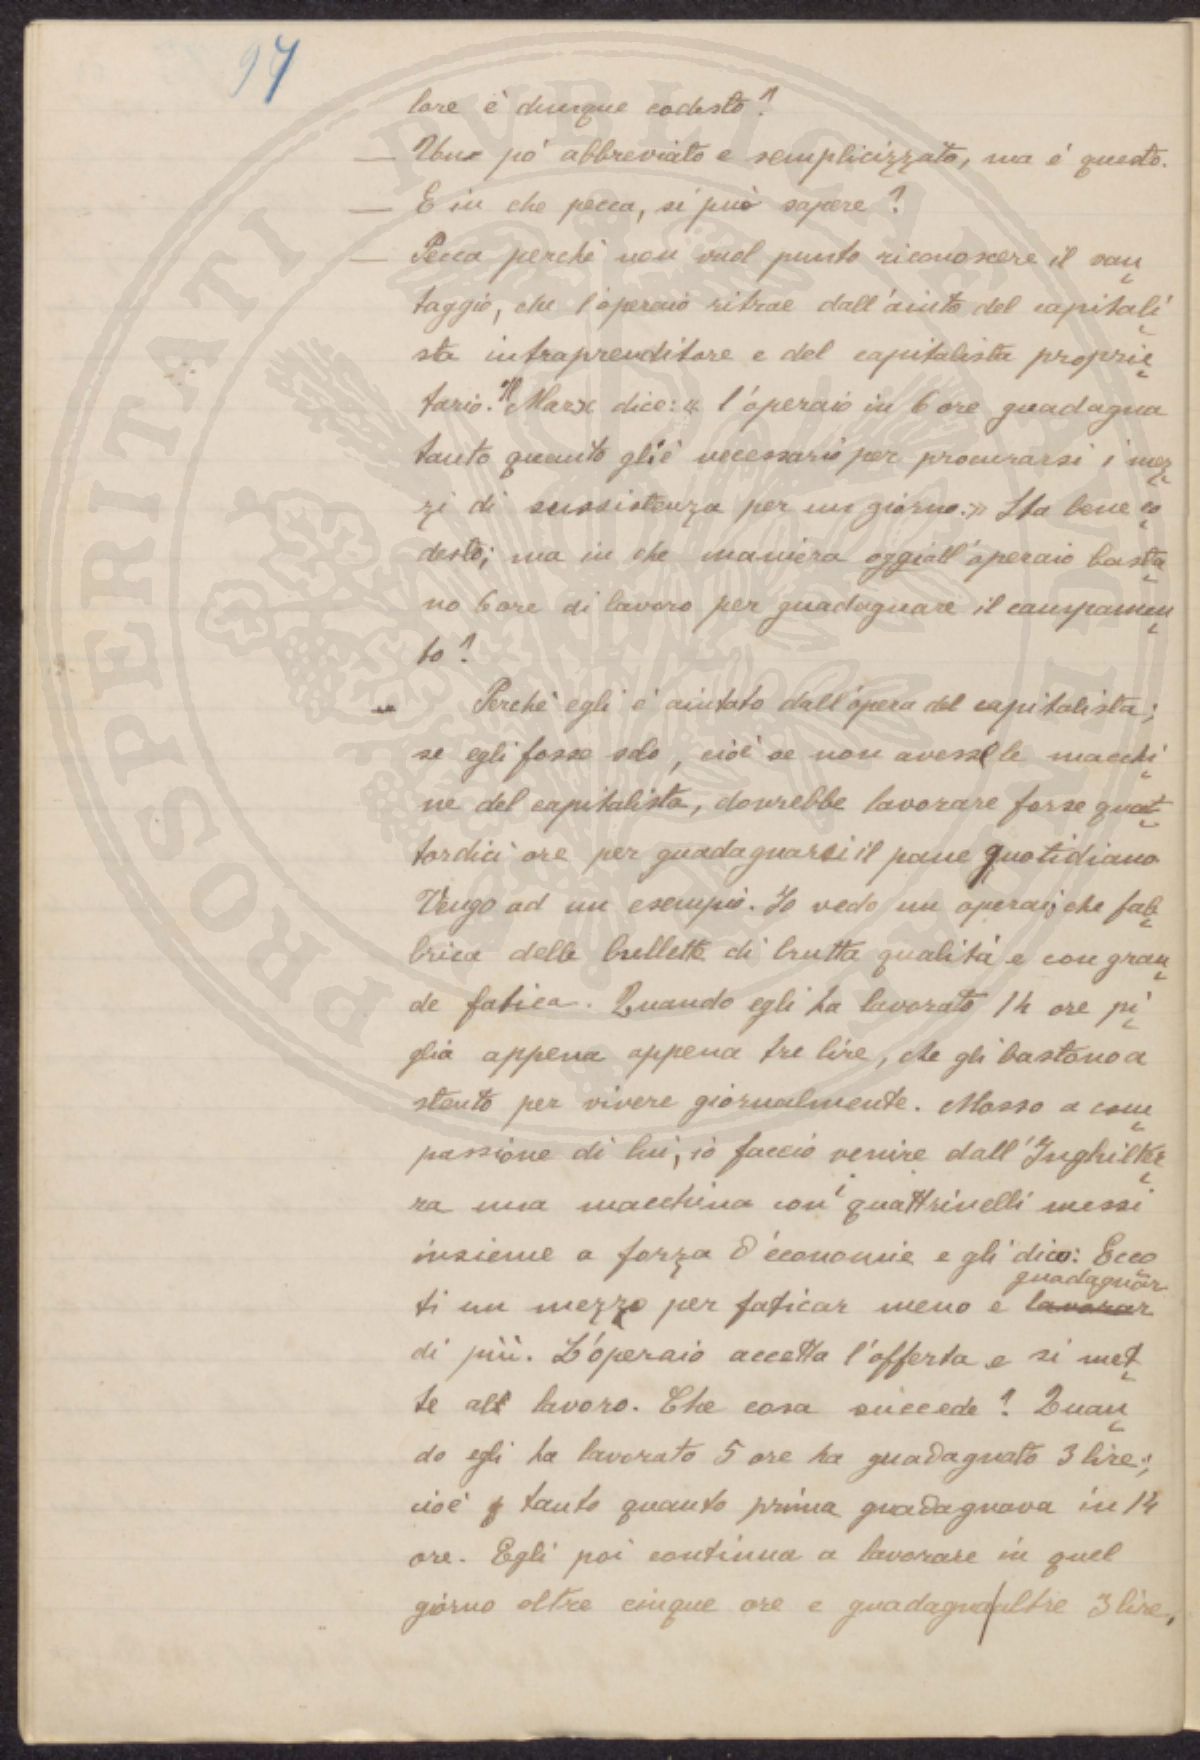 97
lore è dunque codesto?
— Un pò abbreviato e semplicizzato, ma è questo.
— E in che pecca, si può sapere?
— Pecca perchè non vuol punto riconoscere il van
taggio, che l'operaio ritrae dall'aiuto del capitali
sta intraprenditore e del capitalista proprie
tario. Il Marx dice: « l'operaio in 6 ore guadagna
tanto quanto gli è necessario per procurarsi i mez
zi di sussistenza per un giorno.» Sta bene co
desto; ma in che maniera oggi all'operaio basta
no 6 ore di lavoro per guadagnare il campamen
to?
— Perchè egli è aiutato dall'opera del capitalista;
se egli fosse solo, cioè se non avesse le macchi
ne del capitalista, dovrebbe lavorare forse quat
tordici ore per guadagnarsi il pane quotidiano
Vengo ad un esempio. Io vedo un operaio che fab
brica delle bullette di brutta qualità e con gran
de fatica. Quando egli ha lavorato 14 ore pi
glia appena appena tre lire, che gli bastono a
stento per vivere giornalmente. Mosso a com
passione di lui, io faccio venire dall'Inghilter
ra una macchina con i quattrinelli messi
insieme a forza d'economie e gli dico: Ecco
guadagnar
ti un mezzo per faticar meno e lavorar
di più. L'operaio accetta l'offerta e si met
te al lavoro. Che cosa succede? Quan
do egli ha lavorato 5 ore ha guadagnato 3 lire;
cioè tanto quanto prima guadagnava in 14
ore. Egli poi continua a lavorare in quel
giorno oltre cinque ore e guadagna altre 3 lire,
PROSPERITATI PUBLICAE